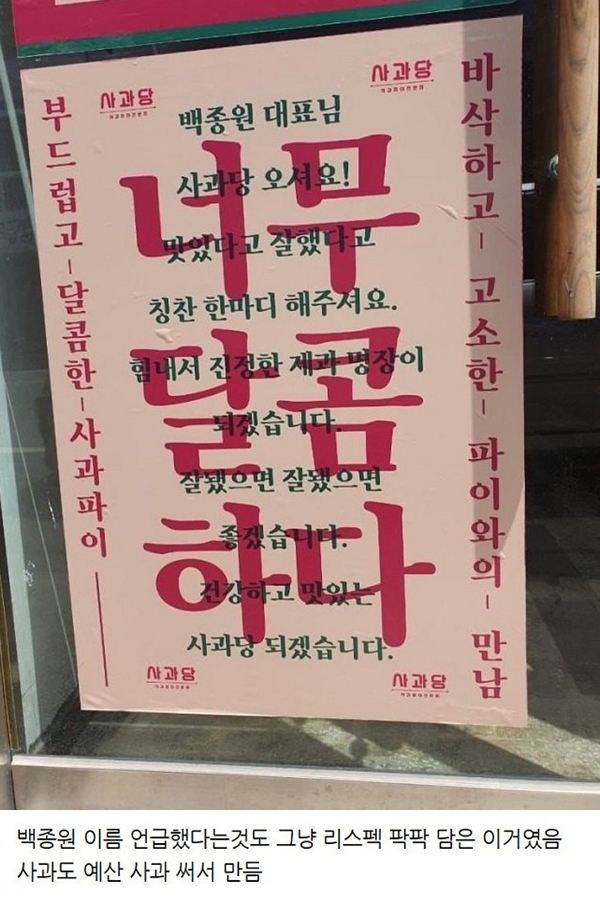 부드럽고-달콤한-사과파이
사과당
사과당
바삭하고- 고소한- 파이와의- 만남
백종원 대표님
사과당 오셔요!
맛있다고 잘했다고
칭찬 한마디 해주셔요.
힘내서 진정한 제과 명장이
되겠습니다.
잘됐으면 잘됐으면
좋겠습니다.
건강하고 맛있는
사과당 되겠습니다.
너무
달콤
하다
사과당
사과당
백종원 이름 언급했다는것도 그냥 리스펙 팍팍 담은 이거였음
사과도 예산 사과 써서 만듬